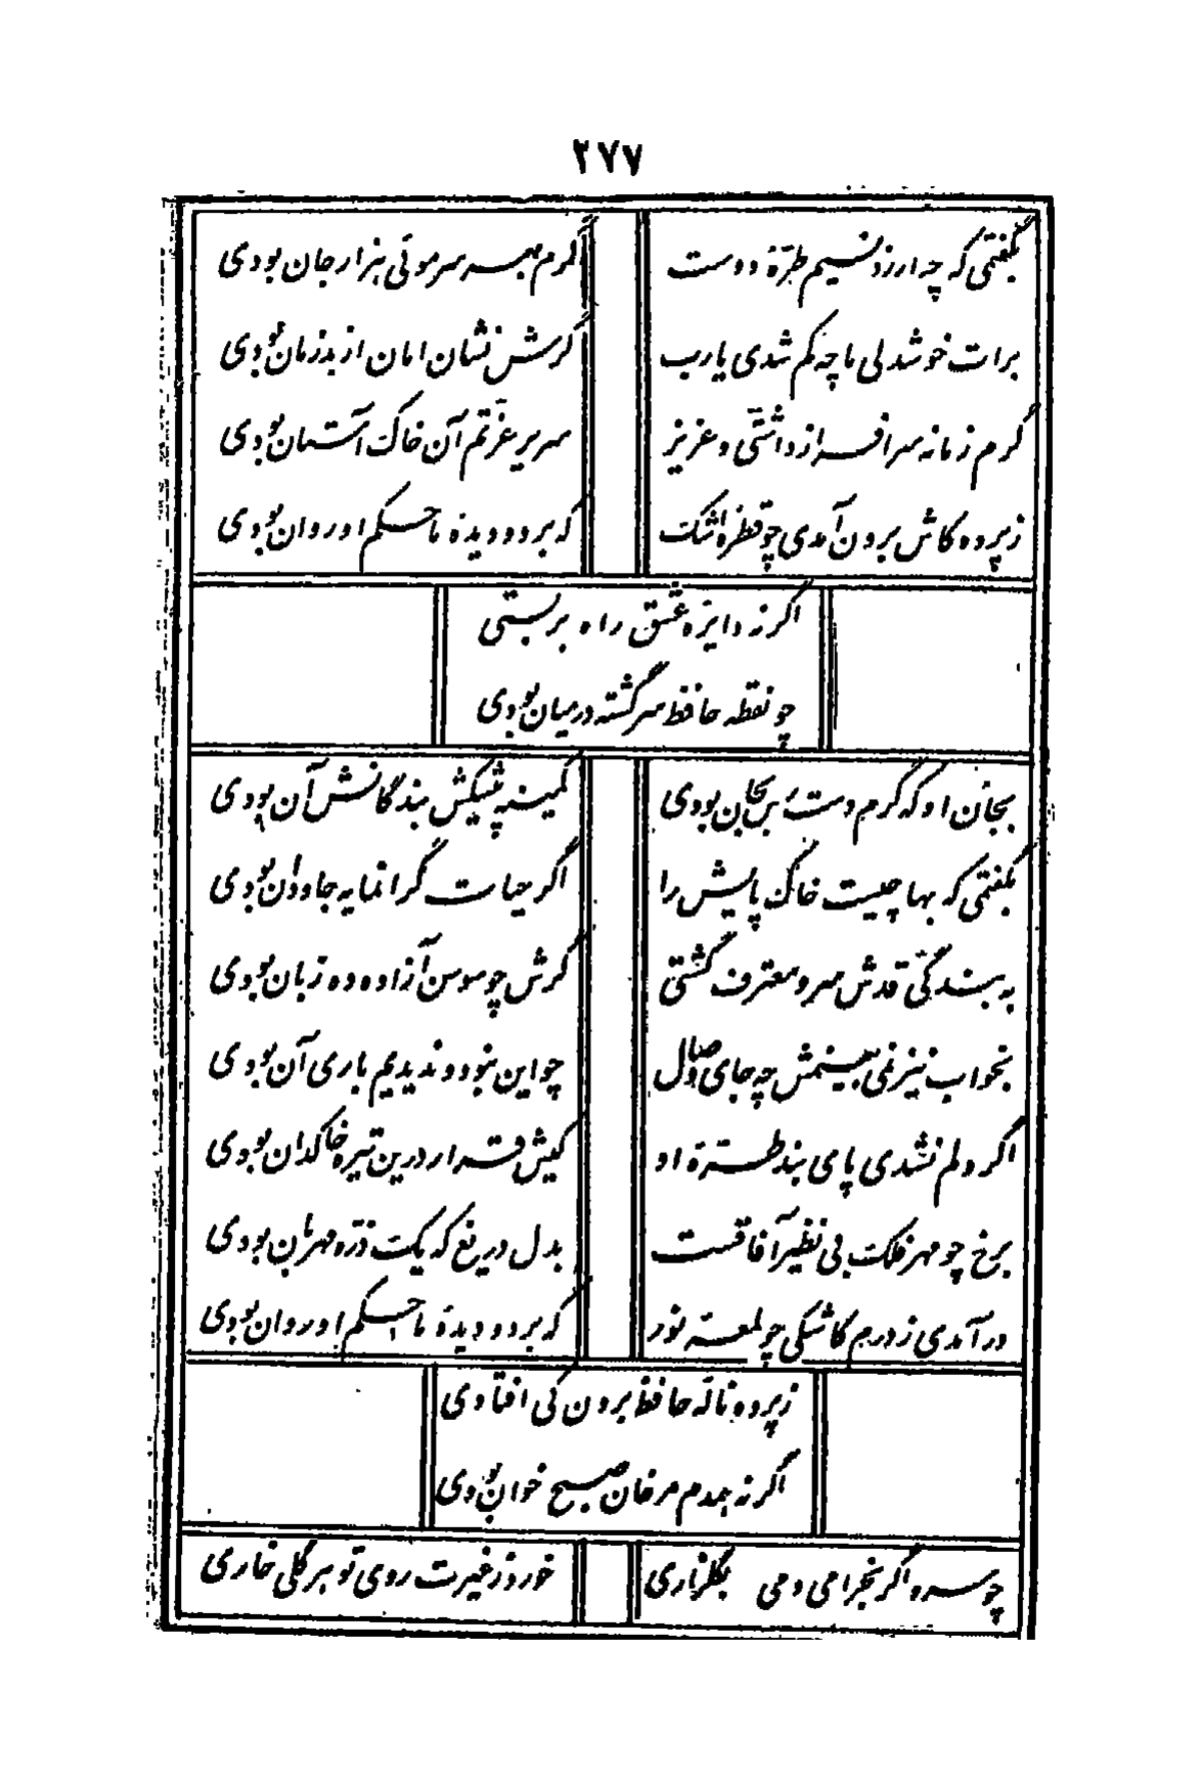 ۲۷۷
بگفتمی که چه ارزد نسیم طرّهٔ دوست
گرم بهر سر موئی هزار جان بودی
برات خوشدلی ما چه کم شدی یارب
گرش نشان امان از بد زمان بودی
گرم زمانه سرافراز داشتی و عزیز
سریر عزّتم آن خاک آستان بودی
ز پرده کاش برون آمدی چو قطره اشک
که بر دو دیدهٔ ما حکم او روان بودی
اگر نه دایره عشق راه بر بستی
چو نقطه حافظ سرگشته در میان بودی
بجان او که گرم دسترس بجان بودی
کمینه پیشکش بندگانش آن بودی
بگفتمی که بها چیست خاک پایش را
اگر حیات گرانمایه جاودان بودی
به بندگی قدش سرو معترف گشتی
گرش چو سوسن آزاده ده زبان بودی
بخواب نیز نمی بینمش چه جای وصال
چو این نبود و ندیدیم باری آن بودی
اگر دلم نشدی پای بند طرّهٔ او
کیش قرار درین تیره خاکدان بودی
برخ چو مهر فلک بی نظیر آفاقست
بدل دریغ که یک ذرّه مهربان بودی
در آمدی ز درم کاشکی چو لمعهٔ نور
که بر دو دیدهٔ ما حکم او روان بودی
ز پرده نالهٔ حافظ برون کی افتادی
اگر نه همدم مرغان صبح خوان بودی
چو سرو اگر بخرامی دمی بگلزاری
خورد ز غیرت روی تو هر گلی خاری